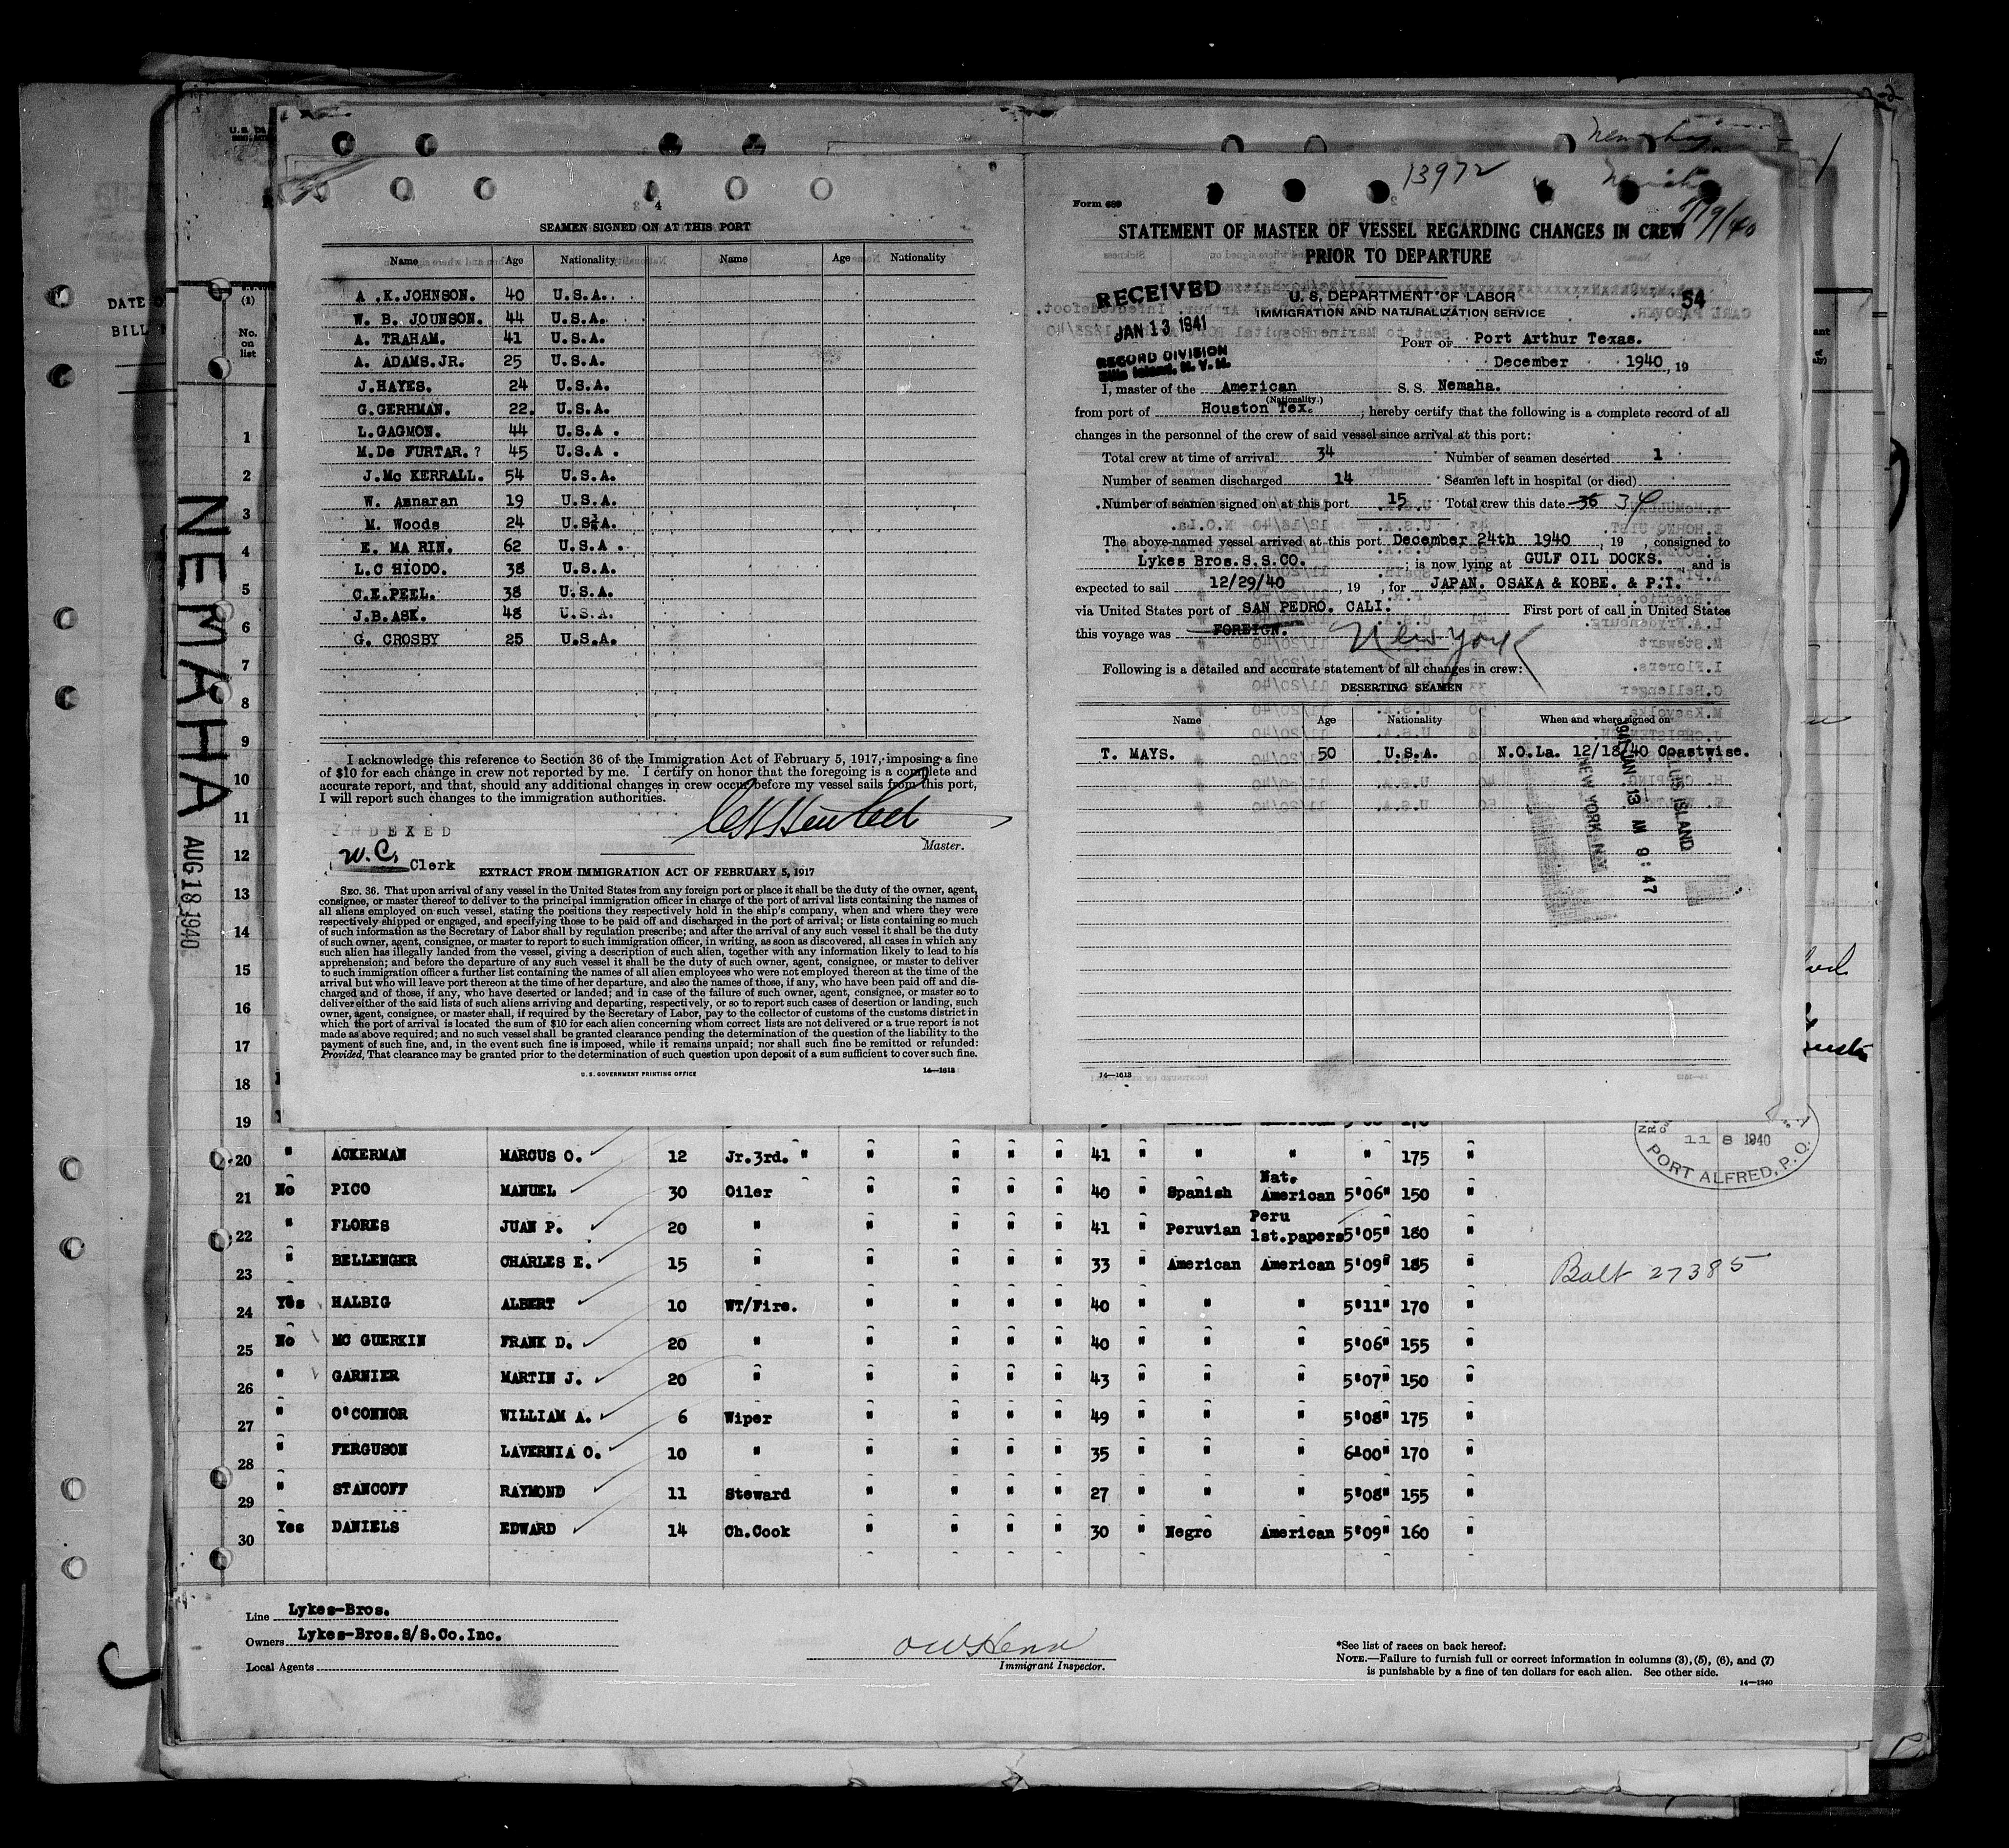 13972
Nemaha
SEAMEN SIGNED ON AT THIS PORT
Name Age Nationality Name Age Nationality
A .K.JOHNSON. 40 U.S.A..
W. B. JOUNSON. 44 U.S.A.
A. TRAHAM. 41 U.S.A.
A. ADAMS.JR. 25 U.S.A.
J.HAYES. 24 U.S.A.
G.GERHMAN. 22. U.S.A.
L.GAGMON. 44 U.S.A .
M.De FURTAR.? 45 U.S.A .
J.Mc KERRALL. 54 U.S.A.
W. Annaran 19 U.S.A.
M. Woods 24 U.S.A.
E. MA RIN. 62 U.S.A .
L.C HIODO. 38 U.S.A.
C.E.PEEL. 38 U.S.A.
J.B.ASK. 48 U.S.A.
G. CROSBY 25 U.S.A.
I acknowledge this reference to Section 36 of the Immigration Act of February 5, 1917, imposing a fine
of $10 for each change in crew not reported by me. I certify on honor that the foregoing is a complete and
accurate report, and that, should any additional changes in crew occur before my vessel sails from this port,
I will report such changes to the immigration authorities.
INDEXED
W.C. Clerk
Master.
EXTRACT FROM IMMIGRATION ACT OF FEBRUARY 5, 1917
SEC. 36. That upon arrival of any vessel in the United States from any foreign port or place it shall be the duty of the owner, agent,
consignee, or master thereof to deliver to the principal immigration officer in charge of the port of arrival lists containing the names of
all aliens employed on such vessel, stating the positions they respectively hold in the ship's company, when and where they were
respectively shipped or engaged, and specifying those to be paid off and discharged in the port of arrival; or lists containing so much
of such information as the Secretary of Labor shall by regulation prescribe; and after the arrival of any such vessel it shall be the duty
of such owner, agent, consignee, or master to report to such immigration officer, in writing, as soon as discovered, all cases in which any
such alien has illegally landed from the vessel, giving a description of such alien, together with any information likely to lead to his
apprehension; and before the departure of any such vessel it shall be the duty of such owner, agent, consignee, or master to deliver
to such immigration officer a further list containing the names of all alien employees who were not employed thereon at the time of the
arrival but who will leave port thereon at the time of her departure, and also the names of those, if any, who have been paid off and dis-
charged and of those, if any, who have deserted or landed; and in case of the failure of such owner, agent, consignee, or master so to
deliver either of the said lists of such aliens arriving and departing, respectively, or so to report such cases of desertion or landing, such
owner, agent, consignee, or master shall, if required by the Secretary of Labor, pay to the collector of customs of the customs district in
which the port of arrival is located the sum of $10 for each alien concerning whom correct lists are not delivered or a true report is not
made as above required; and no such vessel shall be granted clearance pending the determination of the question of the liability to the
payment of such fine, and, in the event such fine is imposed, while it remains unpaid; nor shall such fine be remitted or refunded:
Provided, That clearance may be granted prior to the determination of such question upon deposit of a sum sufficient to cover such fine.
U. S. GOVERNMENT PRINTING OFFICE 14—1613
Form 689
STATEMENT OF MASTER OF VESSEL REGARDING CHANGES IN CREW
PRIOR TO DEPARTURE
RECEIVED
JAN 13 1941
RECORD DIVISION
Ellis Island, N. Y. H.
U. S. DEPARTMENT OF LABOR
54
IMMIGRATION AND NATURALIZATION SERVICE
PORT OF Port Arthur Texas.
December 1940, 19
I, master of the American S. S. Nemaha.
(Nationality.)
from port of Houston Tex. ; hereby certify that the following is a complete record of all
changes in the personnel of the crew of said vessel since arrival at this port:
Total crew at time of arrival 34 Number of seamen deserted 1
Number of seamen discharged 14 Seamen left in hospital (or died)
Number of seamen signed on at this port 15 Total crew this date 36 34
The above-named vessel arrived at this port December 24th 1940 , 19 , consigned to
Lykes Bros.S.S.CO. ; is now lying at GULF OIL DOCKS. , and is
expected to sail 12/29/40 , 19 , for JAPAN. OSAKA & KOBE. & P.I.
via United States port of SAN PEDRO. CALI. First port of call in United States
this voyage was FOREIGN. New York
Following is a detailed and accurate statement of all changes in crew:
DESERTING SEAMEN
Name Age Nationality When and where signed on
T. MAYS. 50 U.S.A. N.O.La. 12/18/40 Coastwise.
1941 JAN 13 M 9:47
ELLIS ISLAND
NEW YORK N.Y.
14—1613
NEMAHA
AUG 18 1940
DATE
BILL
(1)
No.
on
list
1
2
3
4
5
6
7
8
9
10
11
12
13
14
15
16
17
18
19
20 " ACKERMAN MARCUS O. 12 Jr.3rd. " " " " " 41 " " " " 175 "
21 No PICO MANUEL 30 Oiler " " " " 40 " Spanish Nat. American 5'06" 150 "
22 " FLORES JUAN P. 20 " " " " " 41 " Peruvian Peru 1st.papers 5'05" 180 "
23 " BELLENGER CHARLES E. 15 " " " " " 33 " American American 5'09" 185 "
24 Yes HALBIG ALBERT 10 WT/Fire. " " " " 40 " " " 5'11" 170 "
25 No MC GUERKIN FRANK D. 20 " " " " " 40 " " " 5'06" 155 "
26 " GARNIER MARTIN J. 20 " " " " " 43 " " " 5'07" 150 "
27 " O'CONNOR WILLIAM A. 6 Wiper " " " " 49 " " " 5'08" 175 "
28 " FERGUSON LAVERNIA O. 10 " " " " " 35 " " " 6'00" 170 "
29 " STANCOFF RAYMOND 11 Steward " " " " 27 " " " 5'08" 155 "
30 Yes DANIELS EDWARD 14 Ch.Cook " " " " 30 " Negro American 5'09" 160 "
11 8 1940
PORT ALFRED, P. Q.
Balt 27385
Line Lykes-Bros.
Owners Lykes-Bros.S/S.Co.Inc.
Local Agents
Immigrant Inspector.
*See list of races on back hereof.
NOTE.—Failure to furnish full or correct information in columns (3), (5), (6), and (7)
is punishable by a fine of ten dollars for each alien. See other side.
14—1240